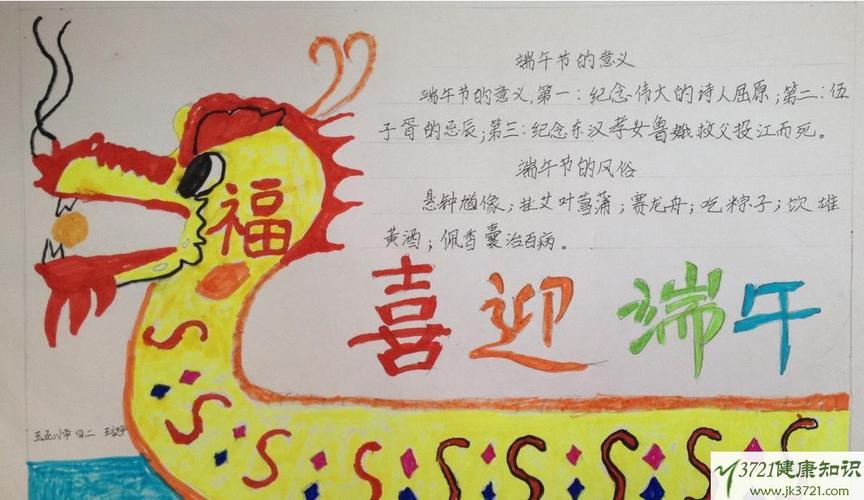 端午节的意义
端午节的意义,第一:纪念伟大的诗人屈原;第二:伍
子胥的忌辰;第三:纪念东汉孝女鲁娥救父投江而死。
端午节的风俗
悬钟馗像;挂艾叶菖蒲;赛龙舟;吃粽子;饮雄
黄酒;佩香囊治百病。
福
喜迎端午
3721健康知识
www.jk3721.com